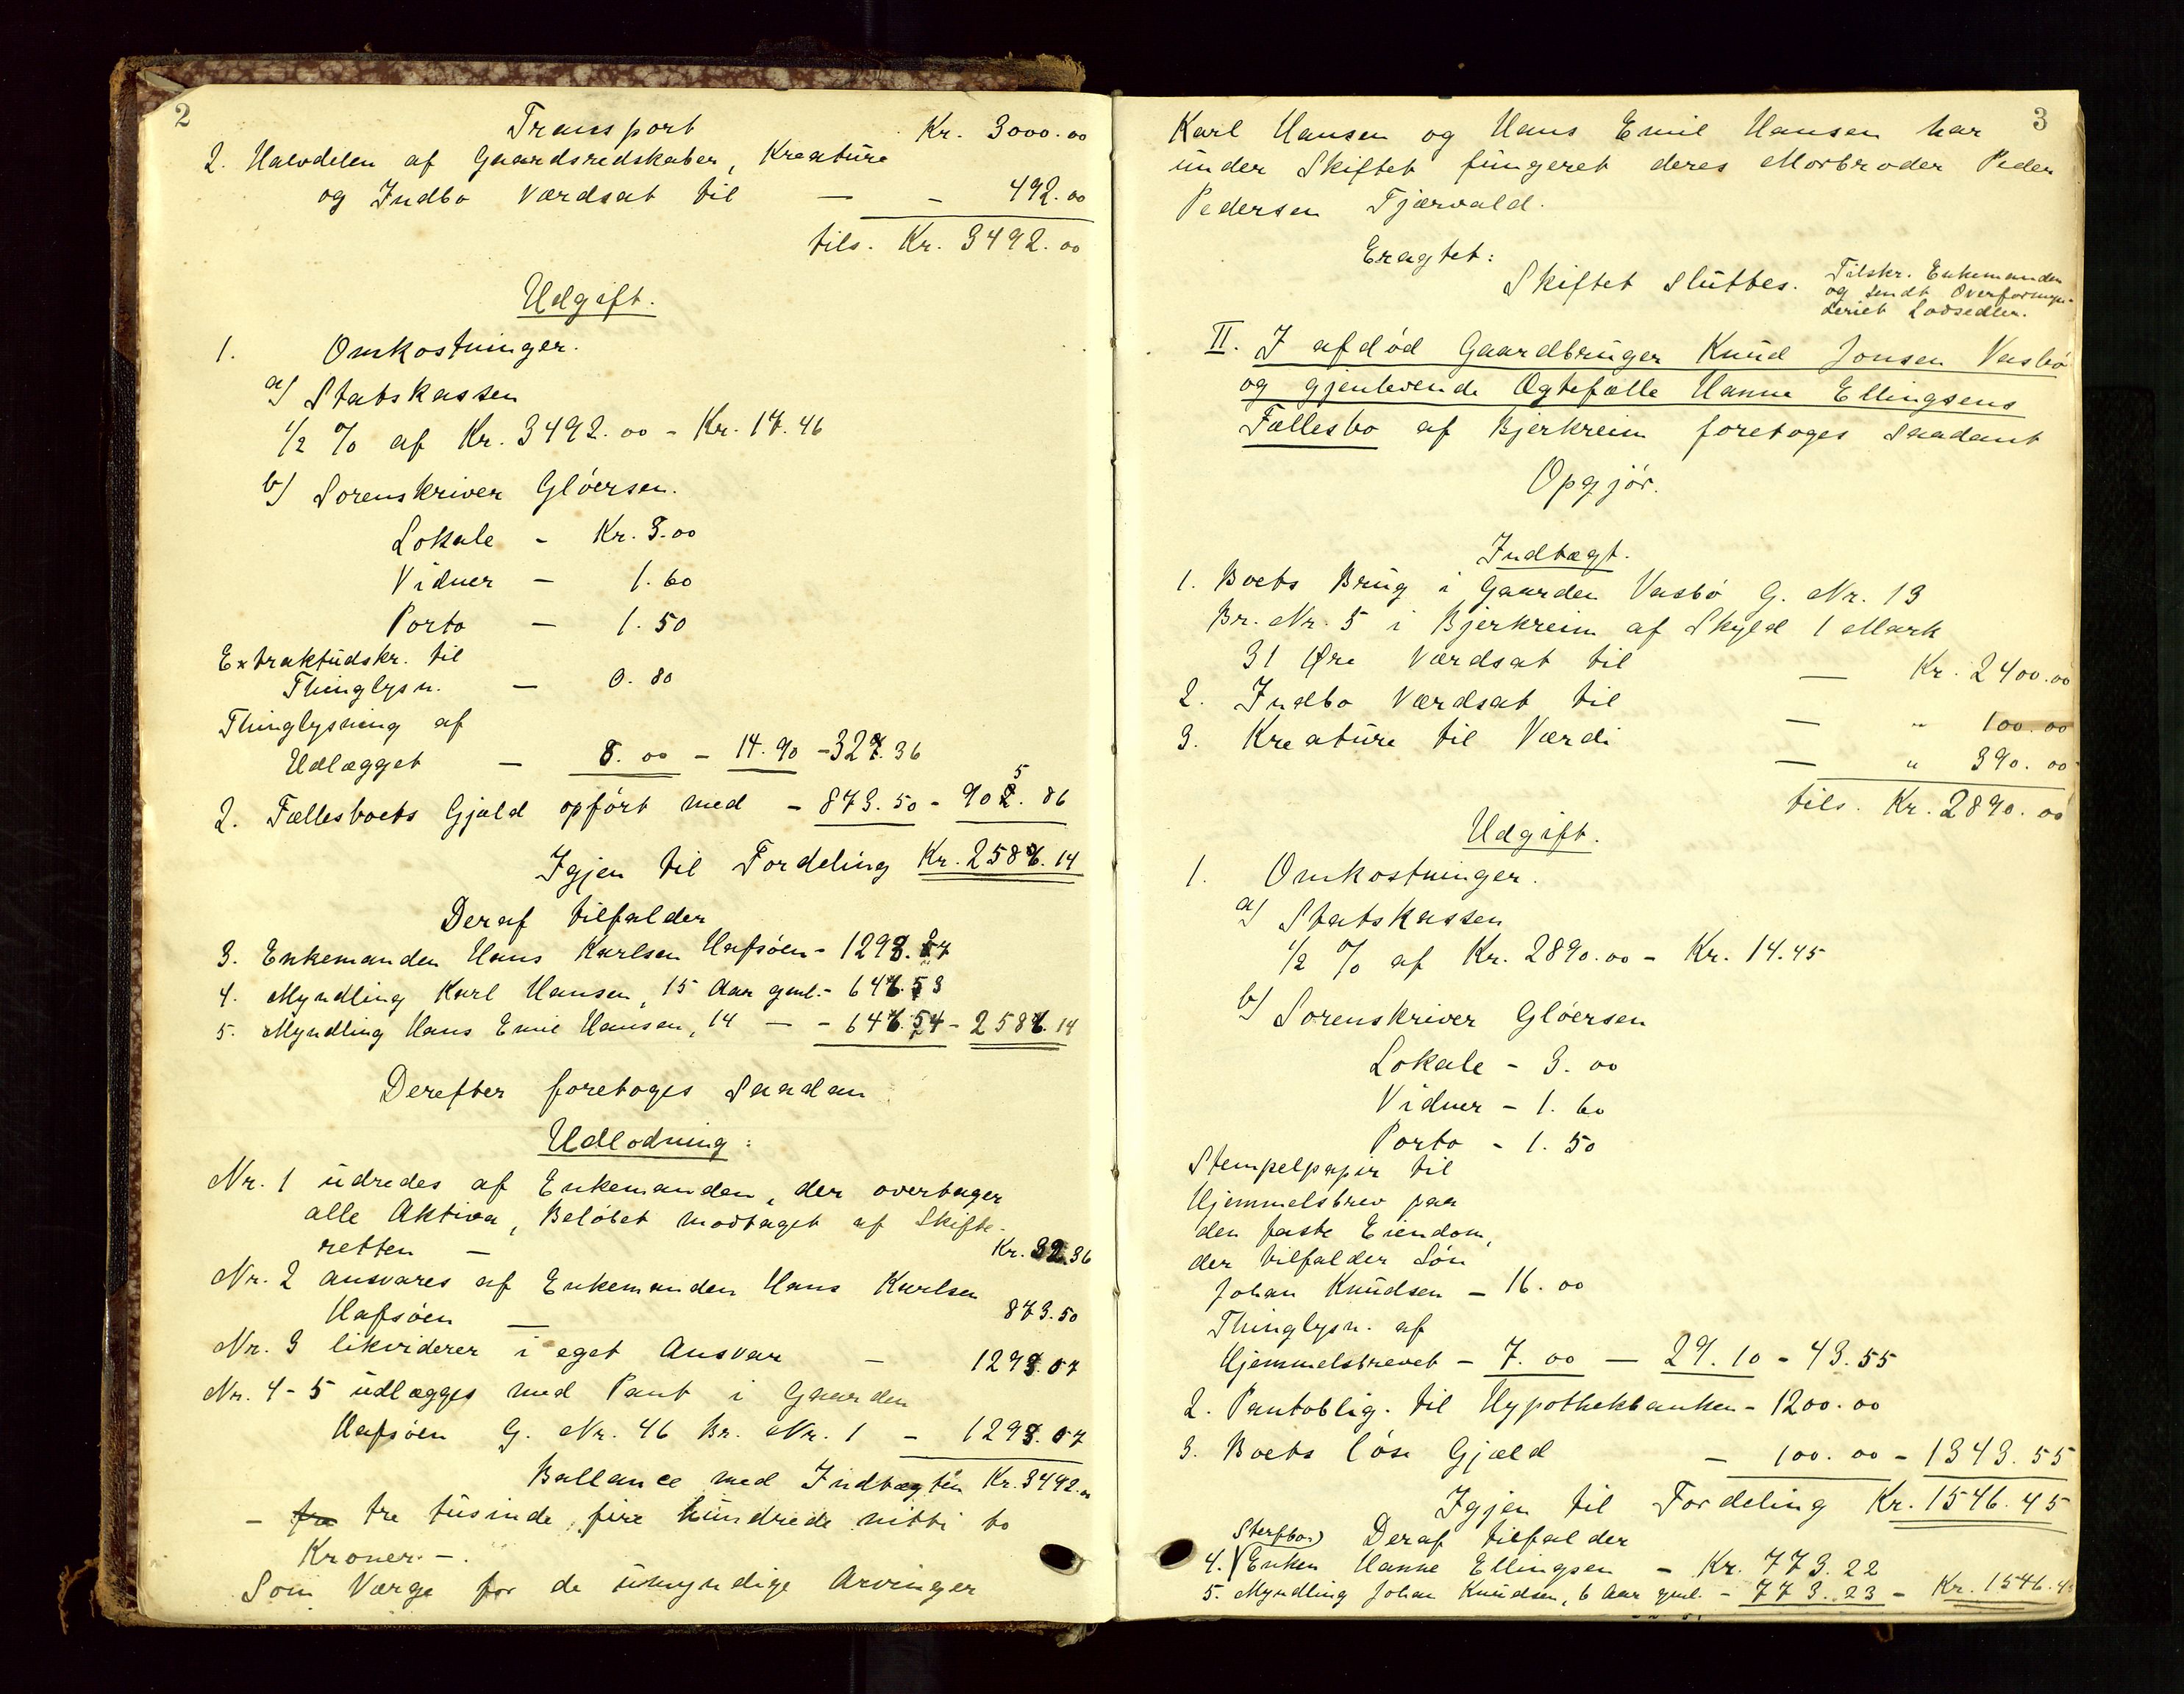 2
Transport Kr. 3000.00
2. Halvdelen af Gaardsredskaber, Kreature
og Indbo Værdsat til — - 492.00
tils. Kr. 3492.00
Udgift.
1. Omkostninger.
a) Statskassen
1/2 % af Kr. 3492.00 - Kr. 17.46
b) Sorenskriver Gløersen.
Lokale - Kr. 3.00
Vidner — 1.60
Porto — 1.50
Extraktudskr. til
Thinglysn. — 0.80
Thinglysning af
Udlægget — 8.00 - 14.90 - 32.36
2. Fællesboets Gjæld opført med - 873.50 - 905.86
Igjen til Fordeling Kr. 2586.14
Deraf tilfalder
3. Enkemanden Hans Karlsen Hafsøen - 1293.07
4. Myndling Karl Hansen, 15 Aar gml. - 646.53
5. Myndling Hans Emil Hansen, 14 — - 646.54 - 2586.14
Derefter foretoges saadan
Udlodning:
Nr. 1 udredes af Enkemanden, der overtager
alle Aktiva, Beløbet modtaget af Skifte-
retten — Kr. 32.36
Nr. 2 ansvares af Enkemanden Hans Karlsen
Hafsøen — 873.50
Nr. 3 likviderer i eget Ansvar — 1293.07
Nr. 4-5 udlægges med Pant i Gaarden
Hafsøen G. Nr. 46 Br. Nr. 1 - 1293.07
Ballance med Indtægten Kr. 3492.00
- tre tusinde, fire hundrede nitti to
Kroner. -
Som Værge for de umyndige Arvinger
3
Karl Hansen og Hans Emil Hansen har
under Skiftet fungeret deres Morbroder Peder
Pedersen Tjærvald.
Eragtet:
Skiftet sluttes. Tilskr. Enkemanden
og sendt Overformyn-
deriet Lodsedler.
II. I afdød Gaardbruger Knud Jonsen Vasbø
og gjenlevende Ægtefælle Hanne Ellingsens
Fællesbo af Bjerkreim foretoges saadant
Opgjør.
Indtægt.
1. Boets Brug i Gaarden Vasbø G. Nr. 13
Br. Nr. 5 i Bjerkreim af Skyld 1 Mark
31 Øre Værdsat til — Kr. 2400.00
2. Indbo Værdsat til — " 100.00
3. Kreature til Værdi — " 390.00
tils. Kr. 2890.00
Udgift.
1. Omkostninger.
a) Statskassen
1/2 % af Kr. 2890.00 - Kr. 14.45
b) Sorenskriver Gløersen
Lokale - 3.00
Vidner - 1.60
Porto - 1.50
Stempelpapir til
Hjemmelsbrev paa
den faste Eiendom,
der tilfalder Søn
Johan Knudsen - 16.00
Thinglysn. af
Hjemmelsbrevet - 7.00 — 29.10 - 43.55
2. Pantoblig. til Hypothekbanken - 1200.00
3. Boets løse Gjæld - 100.00 - 1343.55
Igjen til Fordeling Kr. 1546.45
Deraf tilfalder
4. Enken Hanne Ellingsen - Kr. 773.22
5. Myndling Johan Knudsen, 6 Aar gml. - 773.23 - Kr. 1546.45